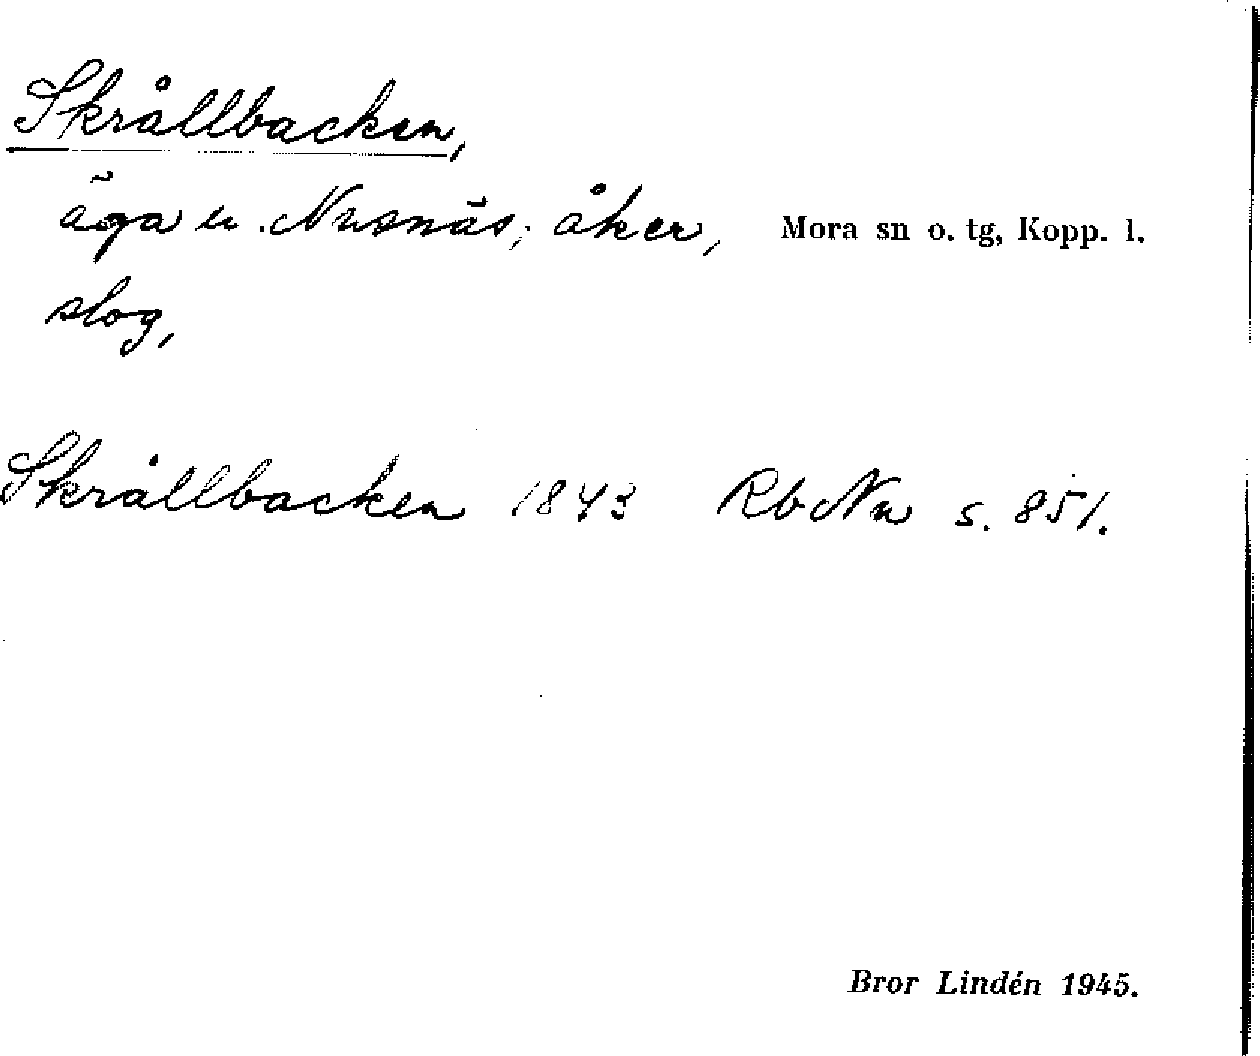 Skrållbacken,
äga u. Nusnäs; åker, Mora sn o. tg, Kopp. l.
slog,
Skrållbacken 1843 Rb Nu s. 851.
Bror Lindén 1945.